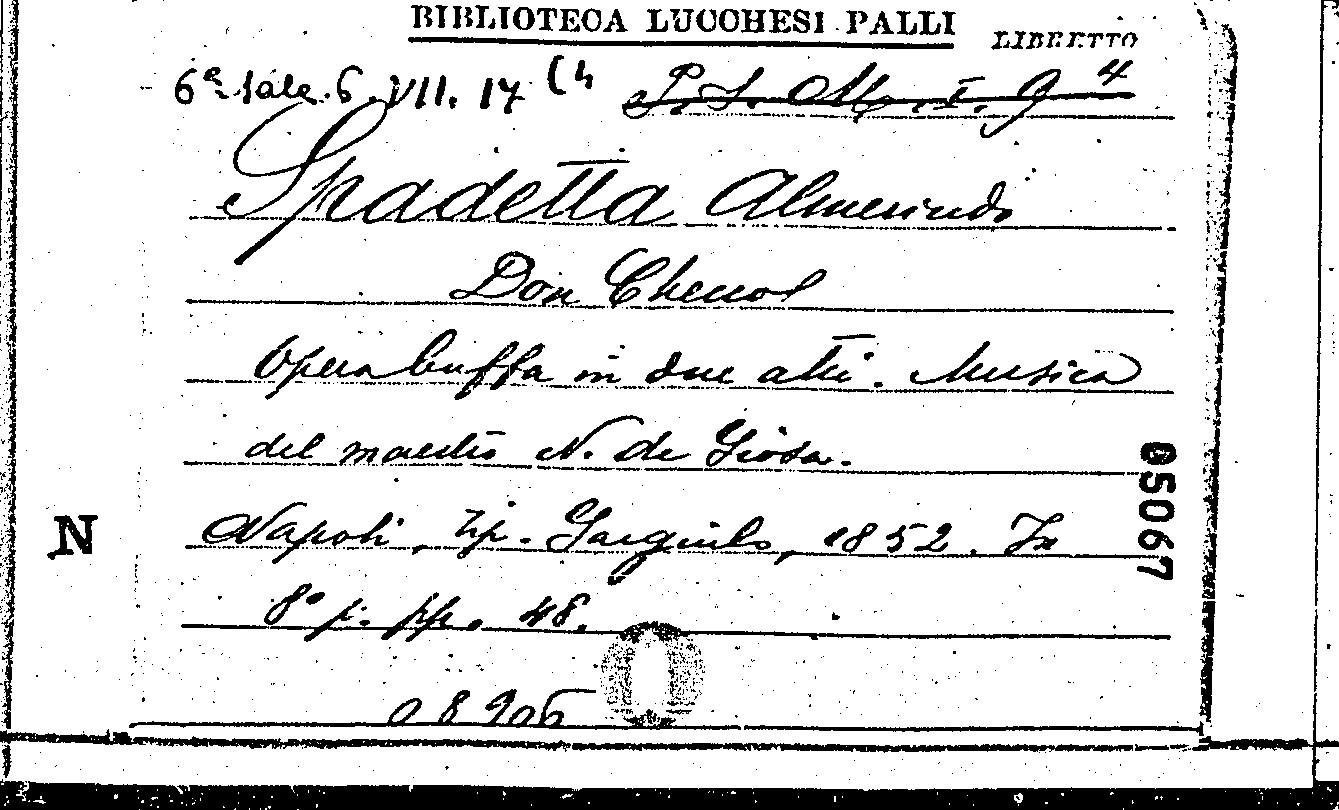 BIBLIOTECA LUCCHESI PALLI
LIBRETTO
6ª Sala. 6. VII. 17 (4
S. L. M. I. 9 4
Spadetta Almerindo
Don Checco
Opera buffa in due atti. Musica
del maestro N. de Giosa.
Napoli, tip. Gargiulo, 1852. In
8° p. pp. 48.
N
05067
08905